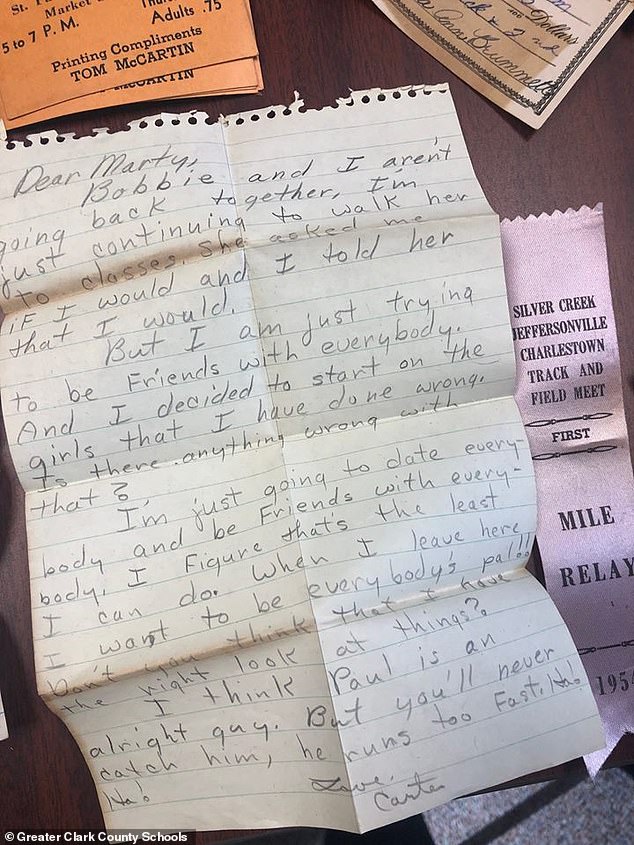 St.
Market
5 to 7 P. M.
Adults .75
Printing Compliments
TOM McCARTIN
McCARTIN
Dollars
Dear Marty,
Bobbie and I aren't
going back together, I'm
just continuing to walk her
to classes. She asked me
if I would and I told her
that I would.
But I am just trying
to be Friends with everybody.
And I decided to start on the
girls that I have done wrong.
Is there anything wrong with
that?
I'm just going to date every-
body and be Friends with every-
body. I Figure that's the least
I can do. When I leave here
I want to be everybody's pal!!
Don't you think that I have
the right look at things?
I think Paul is an
alright guy. But you'll never
catch him, he runs too Fast. Ha!
Ha!
Love,
Carter
SILVER CREEK
JEFFERSONVILLE
CHARLESTOWN
TRACK AND
FIELD MEET
FIRST
MILE
RELAY
1954
© Greater Clark County Schools